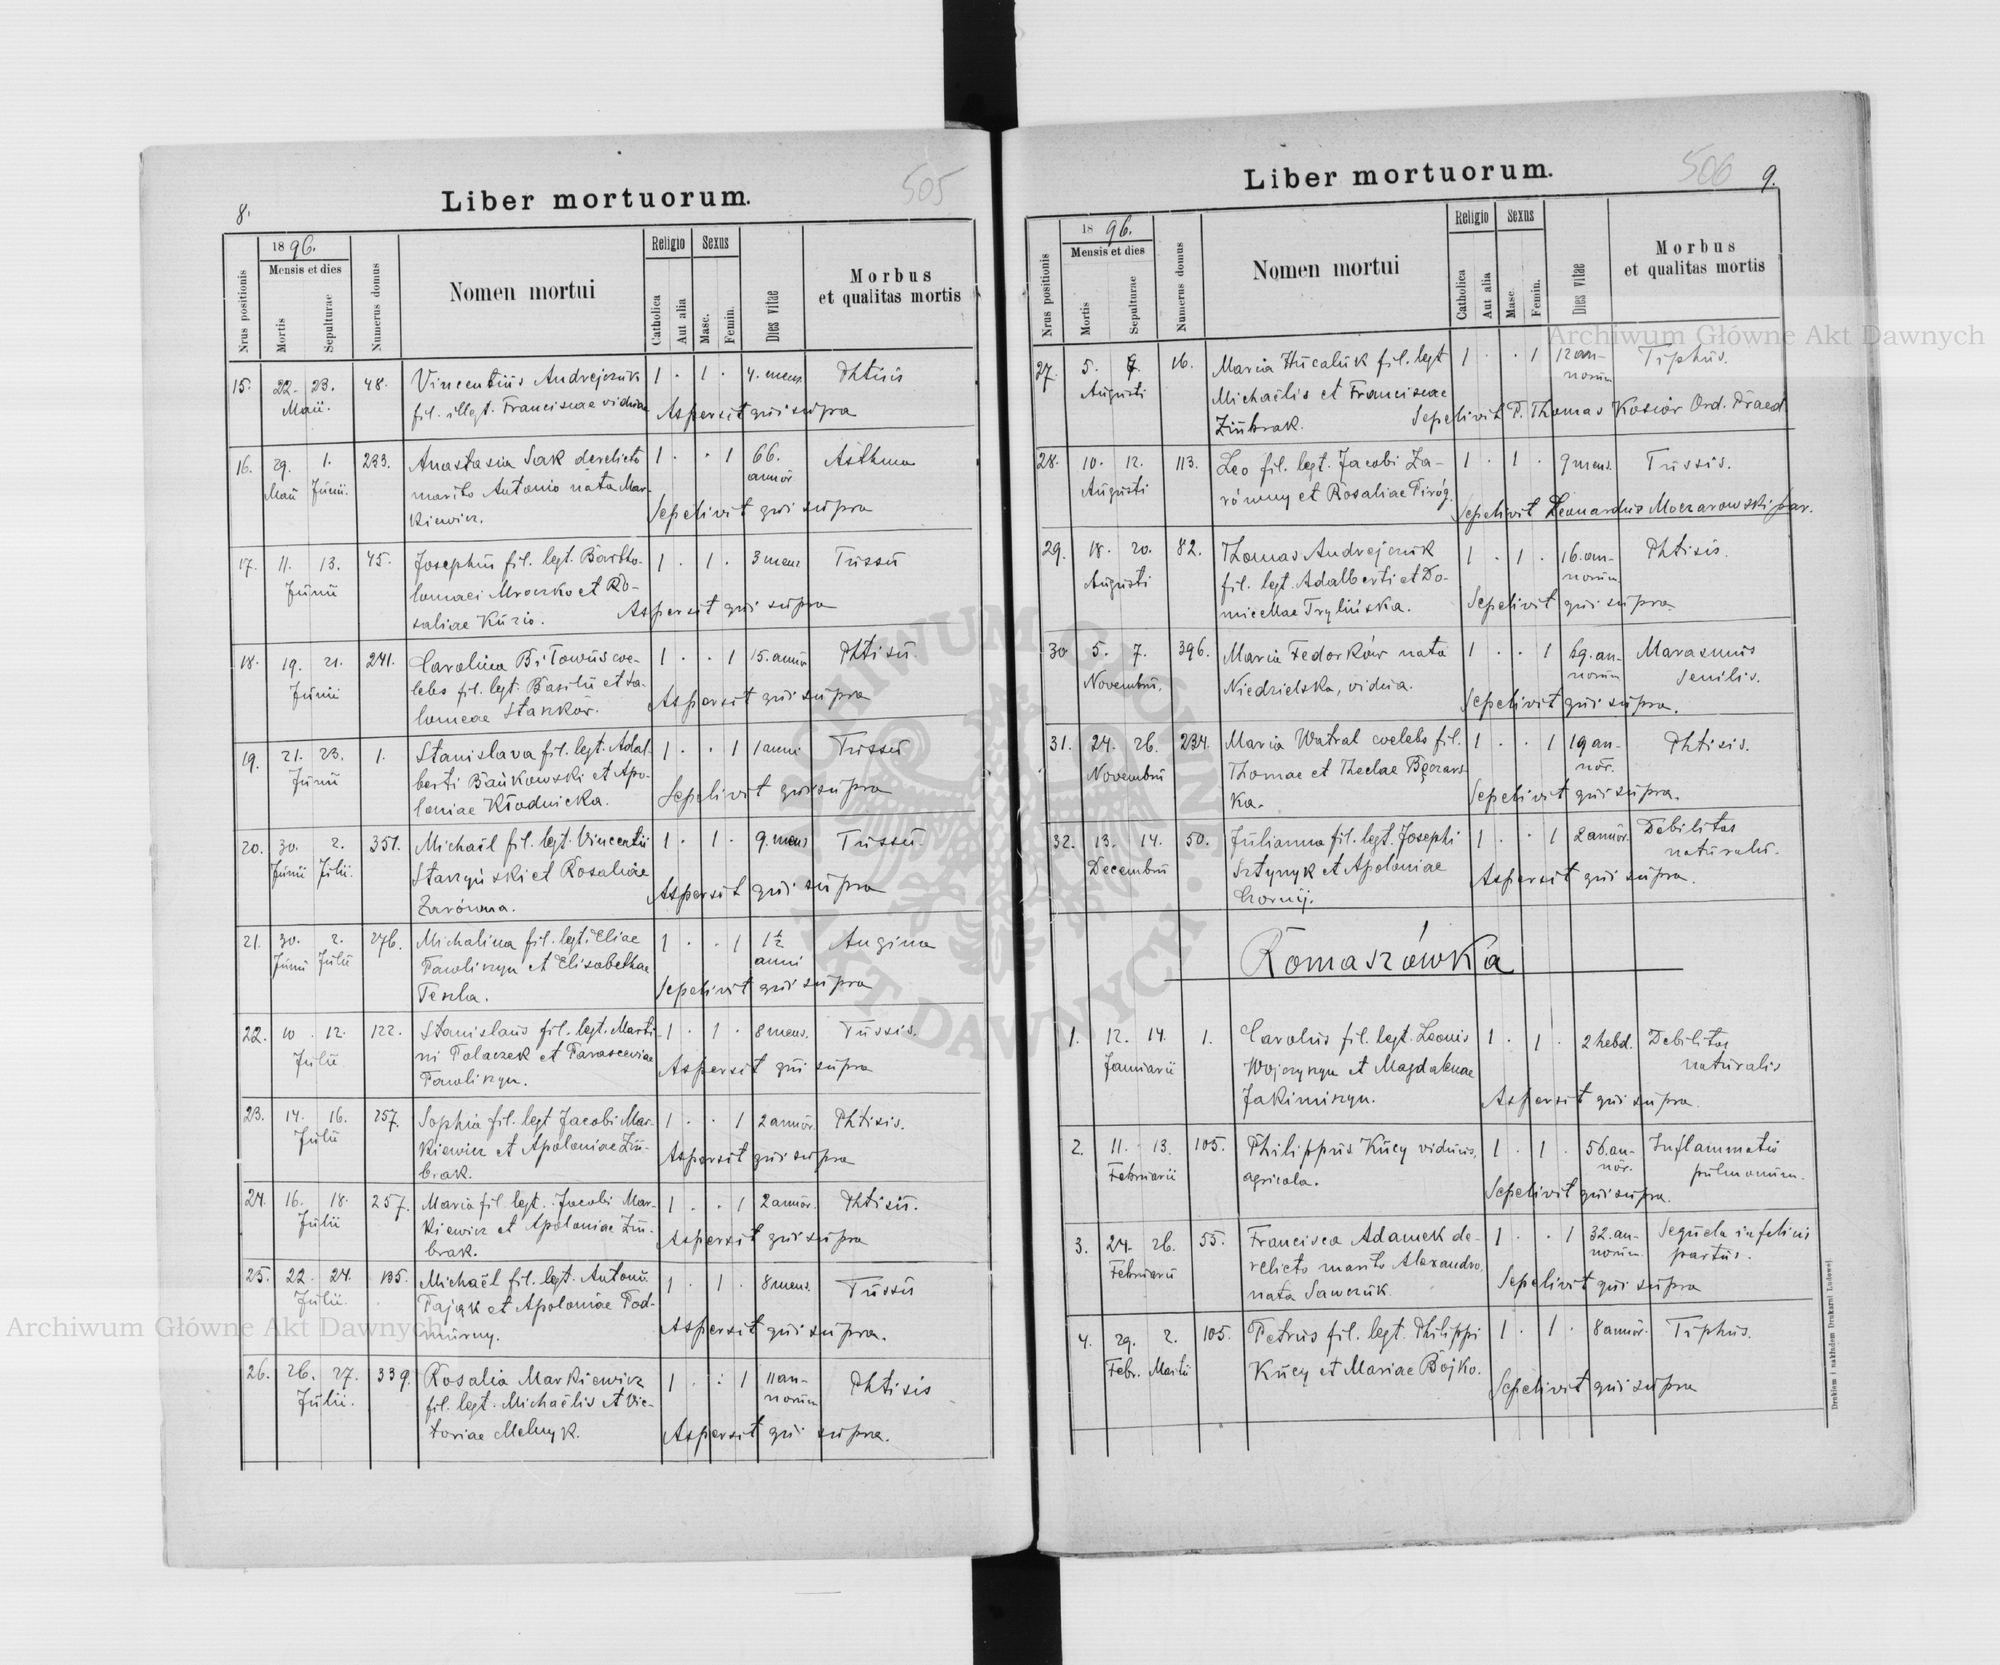 8.
Liber mortuorum.
505
Nrus positionis
1896.
Mensis et dies
Mortis
Sepulturae
Numerus domus
Nomen mortui
Religio
Catholica
Aut alia
Sexus
Masc.
Femin.
Dies vitae
Morbus
et qualitas mortis
15. 22. 23. 48. Vincentius Andrejczuk 1 · 1 · 4. mens. Phtisis
Maii. fil. illegt. Franciscae vidua Aspersit qui supra
16. 29. 1. 233. Anastasia Sak derelicto 1 · · 1 66. Asthma
Maii Junii. marito Antonio nata Mar- annor
kiewicz. Sepelivit qui supra
17. 11. 13. 45. Josephus fil. legt. Bartho- 1 · 1 · 3 mens Tussis
Junii lomaei Mroczko et Ro-
saliae Kurio. Aspersit qui supra
18. 19. 21. 241. Carolina coe- 1 · · 1 15. annor Phtisis.
Junii lebs fil. legt. Basilii et Sa-
lomeae Stankow. Aspersit qui supra
19. 21. 23. 1. Stanislava fil. legt. Adal- 1 · · 1 1 anni Tussis
Junii berti Bańkowski et Apo-
loniae Kłodnicka. Sepelivit qui supra
20. 30. 2. 351. Michaël fil. legt. Vincentii 1 · 1 · 9. mens Tussis.
Junii Julii. Starzyński et Rosaliae
Zarówna. Aspersit qui supra
21. 30. 2. 276. Michalina fil. legt. Eliae 1 · · 1 1½ Angina
Junii Julii Pawliszyn et Elisabethae anni
Tenla. Sepelivit qui supra
22. 10. 12. 122. Stanislaus fil. legt. Marti- 1 · 1 · 8 mens. Tussis.
Julii ni Polaczek et Parasceviae
Pawliszyn. Aspersit qui supra
23. 14. 16. 257. Sophia fil. legt Jacobi Mar- 1 · · 1 2 annor. Phtisis.
Julii kiewicz et Apoloniae Zu-
brak. Aspersit qui supra
24. 16. 18. 257. Maria fil. legt. Jacobi Mar- 1 · · 1 2 annor. Phtisis.
Julii kiewicz et Apoloniae Zu-
brak. Aspersit qui supra
25. 22. 24. 135. Michaël fil. legt. Antonii 1 · 1 · 8 mens. Tussis
Julii. Pająk et Apoloniae Pod-
murny. Aspersit qui supra.
26. 26. 27. 339. Rosalia Markiewicz 1 · · 1 11 an- Phtisis
Julii. fil. legt. Michaëlis et Vic- norum
toriae Melnyk. Aspersit qui supra.
Liber mortuorum.
506
9.
Nrus positionis
1896.
Mensis et dies
Mortis
Sepulturae
Numerus domus
Nomen mortui
Religio
Catholica
Aut alia
Sexus
Masc.
Femin.
Dies vitae
Morbus
et qualitas mortis
27. 5. 7. 16. Maria Hucaluk fil. legt 1 · · 1 12 an- Tiphus.
Augusti Michaëlis et Franciscae norum
Zubrak. Sepelivit P. Thomas Kosior Ord. Praed.
28. 10. 12. 113. Leo fil. legt. Jacobi Za- 1 · 1 · 9 mens. Tussis.
Augusti równy et Rosaliae Piróg.
Sepelivit Leonardus Moczarowski par.
29. 18. 20. 82. Thomas Andrejczuk 1 · 1 · 16. an- Phtisis.
Augusti fil. legt. Adalberti et Do- norum
micellae Trylińska. Sepelivit qui supra.
30 5. 7. 396. Maria Fedorków nata 1 · · 1 69. an- Marasmus
Novembris. Niedzielska, vidua. norum senilis.
Sepelivit qui supra.
31. 24. 26. 234. Maria Watral coelebs fil. 1 · · 1 19 an- Phtisis.
Novembris Thomae et Theclae Bęczars- nor.
ka. Sepelivit qui supra.
32. 13. 14. 50. Julianna fil. legt. Josephi 1 · · 1 2 annor. Debilitas
Decembris Sztynyk et Apoloniae naturalis.
Czornij. Aspersit qui supra.
Romaszówka
1. 12. 14. 1. Carolus fil. legt. Leonis 1 · 1 · 2 hebd. Debilitas
Januarii Wojczyszyn et Magdalenae naturalis
Jakimiszyn. Aspersit qui supra.
2. 11. 13. 105. Philippus Kucy viduus, 1 · 1 · 56. an- Inflammatio
Februarii agricola. nor. pulmonum.
Sepelivit qui supra.
3. 24. 26. 55. Francisca Adamek de- 1 · · 1 32. an- Sequela infelicis
Februarii relicto marito Alexandro, norum. partus.
nata Sawczuk. Sepelivit qui supra
4. 29. 2. 105. Petrus fil. legt. Philippi 1 · 1 · 8 annor. Tiphus.
Febr. Martii Kucy et Mariae Bojko.
Sepelivit qui supra
Drukiem i nakładem Drukarni Ludowej
ARCHIWUM GŁÓWNE AKT DAWNYCH
Archiwum Główne Akt Dawnych
Archiwum Główne Akt Dawnych